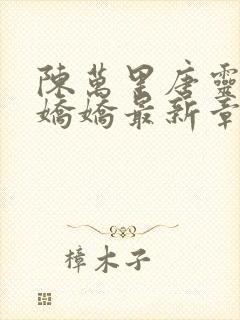 陳萬里唐靈
嬌嬌最新章
樟木子